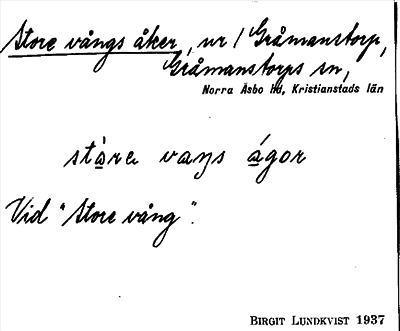 Store vångs åker, nr 1 Gråmanstorp,
Gråmanstorps sn,
Norra Åsbo hd, Kristianstads län
stàra vaŋs ágor
Vid "Store vång".
BIRGIT LUNDKVIST 1937